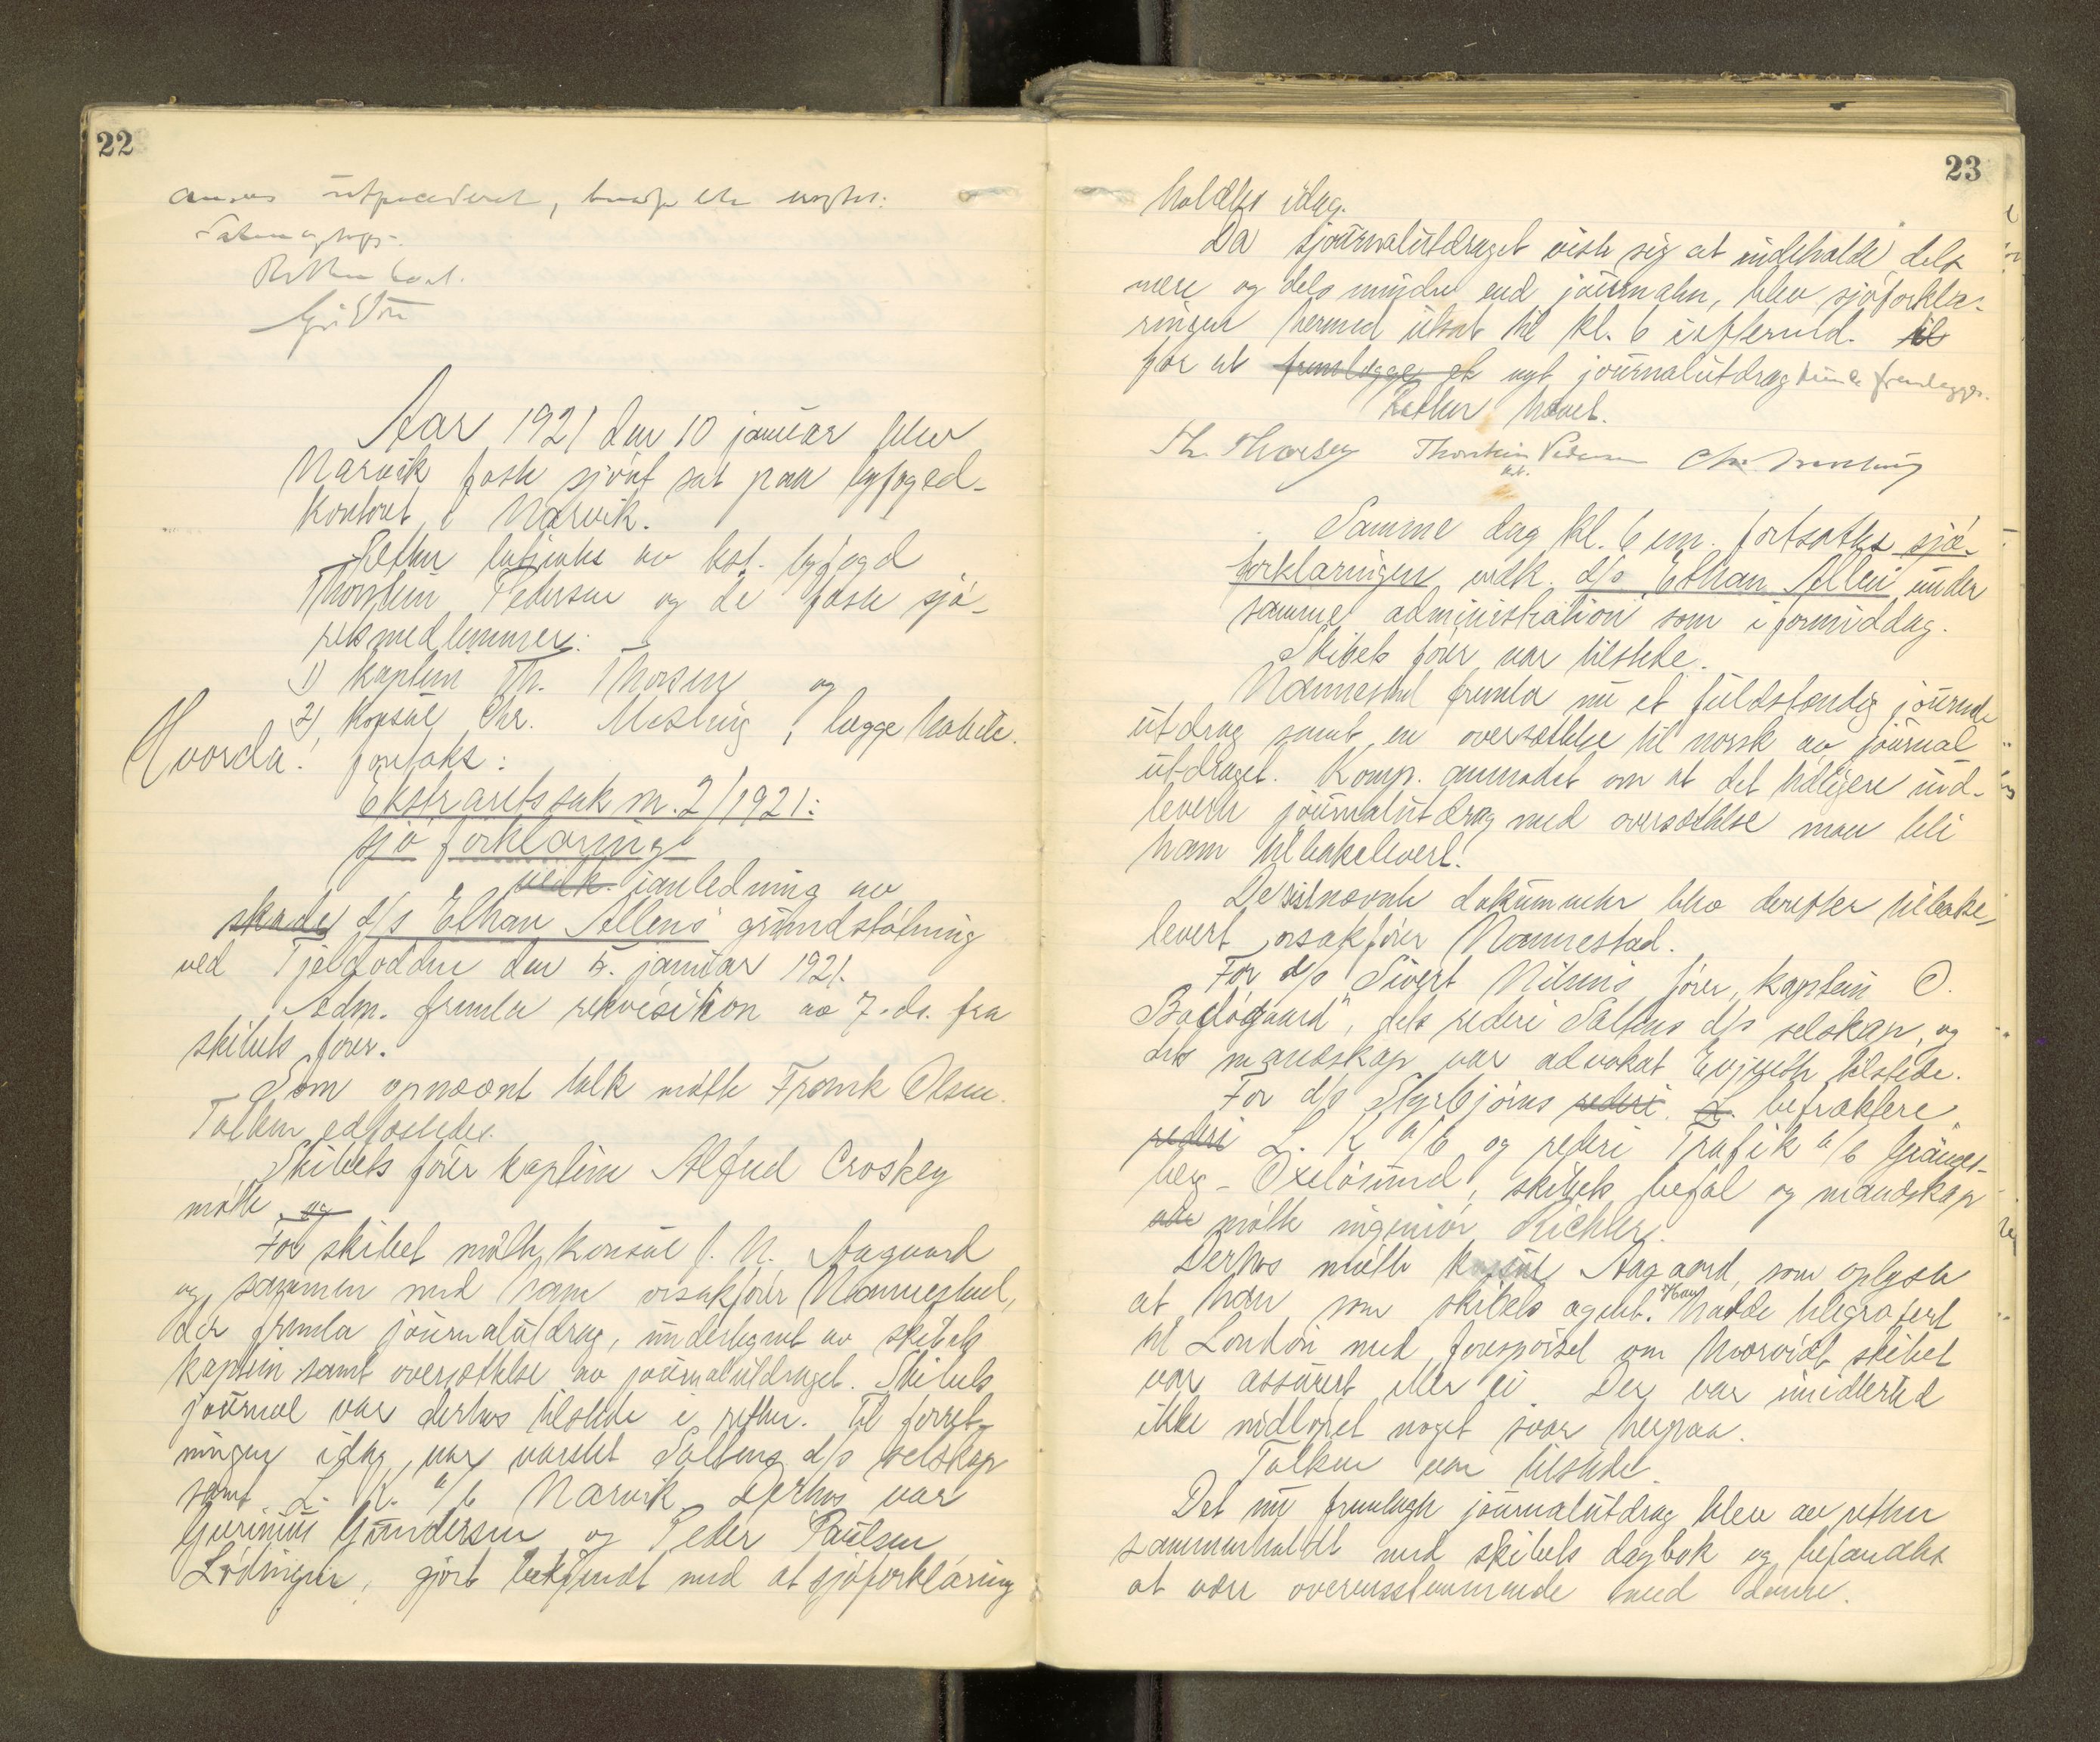 22
Retten hævet.
Aar 1921 den 10 januar blev
Narvik faste sjöret sat paa byfoged-
kontoret i Narvik.
Retten betjentes av kst. byfogd
Thorstein Pedersen og de faste sjö-
retsmedlemmer:
1) kaptein Th. Thorsen og
2) konsul Chr. Mosling, begge tilstede.
Hvorda! foretoks:
Ekstraretssak nr. 2/1921:
sjöforklaring
vedk. ianledning av
skade d/s "Ethan Allens" grundstötning
ved Tjeldodden den 5. januar 1921.
Adm. fremla rekvisition av 7. ds. fra
skibets förer.
Som opnævnt tolk mötte Frank Olsen.
Tolken edfæstedes.
Skibets förer kaptein Alfred Croskey
mötte og
For skibet mötte konsul J. N. Aagaard
og sammen med ham orsakförer Nannestad,
der fremla journalutdrag, undertegnet av skibets
kaptein samt oversættelse av journalutdraget. Skibets
journal var derhos tilstede i retten. Til forret-
ningen idag var varslet Saltens d/s selskap
samt L. K. a/b Narvik. Derhos var
Gundersen og Peder Paulsen
Lödingen, gjort bekjendt med at sjöforklaring
23
holdtes idag.
Da journalutdraget viste sig at indeholde dels
mere og dels mindre end journalen, blev sjöforkla-
ringen hermed utsat til kl. 6 ieftermd. til
for at fremlægge et nyt journalutdrag kunde fremlægges.
Retten hævet.
Th. Thorsen Thorstein Pedersen Chr. Mosling
kst.
Samme dag kl. 6 em. fortsattes sjö-
forklaringen vedk. d/s "Ethan Allen" under
samme administration som i formiddag.
Skibets förer var tilstede.
Nannestad fremla nu et fuldstændig journal
utdrag samt en oversættelse til norsk av journal
utdraget. Komp. anmodet om at det tidligere ind-
leverte journalutdrag med oversættelse maa bli
ham tilbakelevert.
De sistnævnte dokumenter blev derefter tilbake-
levert orsakförer Nannestad.
For d/s "Sivert Nielsens" förer, kaptein O.
Bodögaard", dets rederi Saltens d/s selskap, og
dets mandskap var advokat Evjenth tilstede.
For d/s Styrbjörns rederi. L. befraktere
rederi L. K a/b og rederi Trafik a/b Gränges-
berg - Oxelösund, skibets befal og mandskap
var mötte ingeniör Richter.
Derhos mötte konsul Aagaard, som oplyste
at han som skibets agent hadde telegrafert
til London med forespörsel om hvorvidt skibet
var assurert eller ei. Der var imidlertid
ikke indlöpet noget svar herpaa.
Tolken var tilstede.
Det nu fremlagte journalutdrag blev av retten
sammenholdt med skibets dagbok og befandtes
at være overensstemmende med denne.